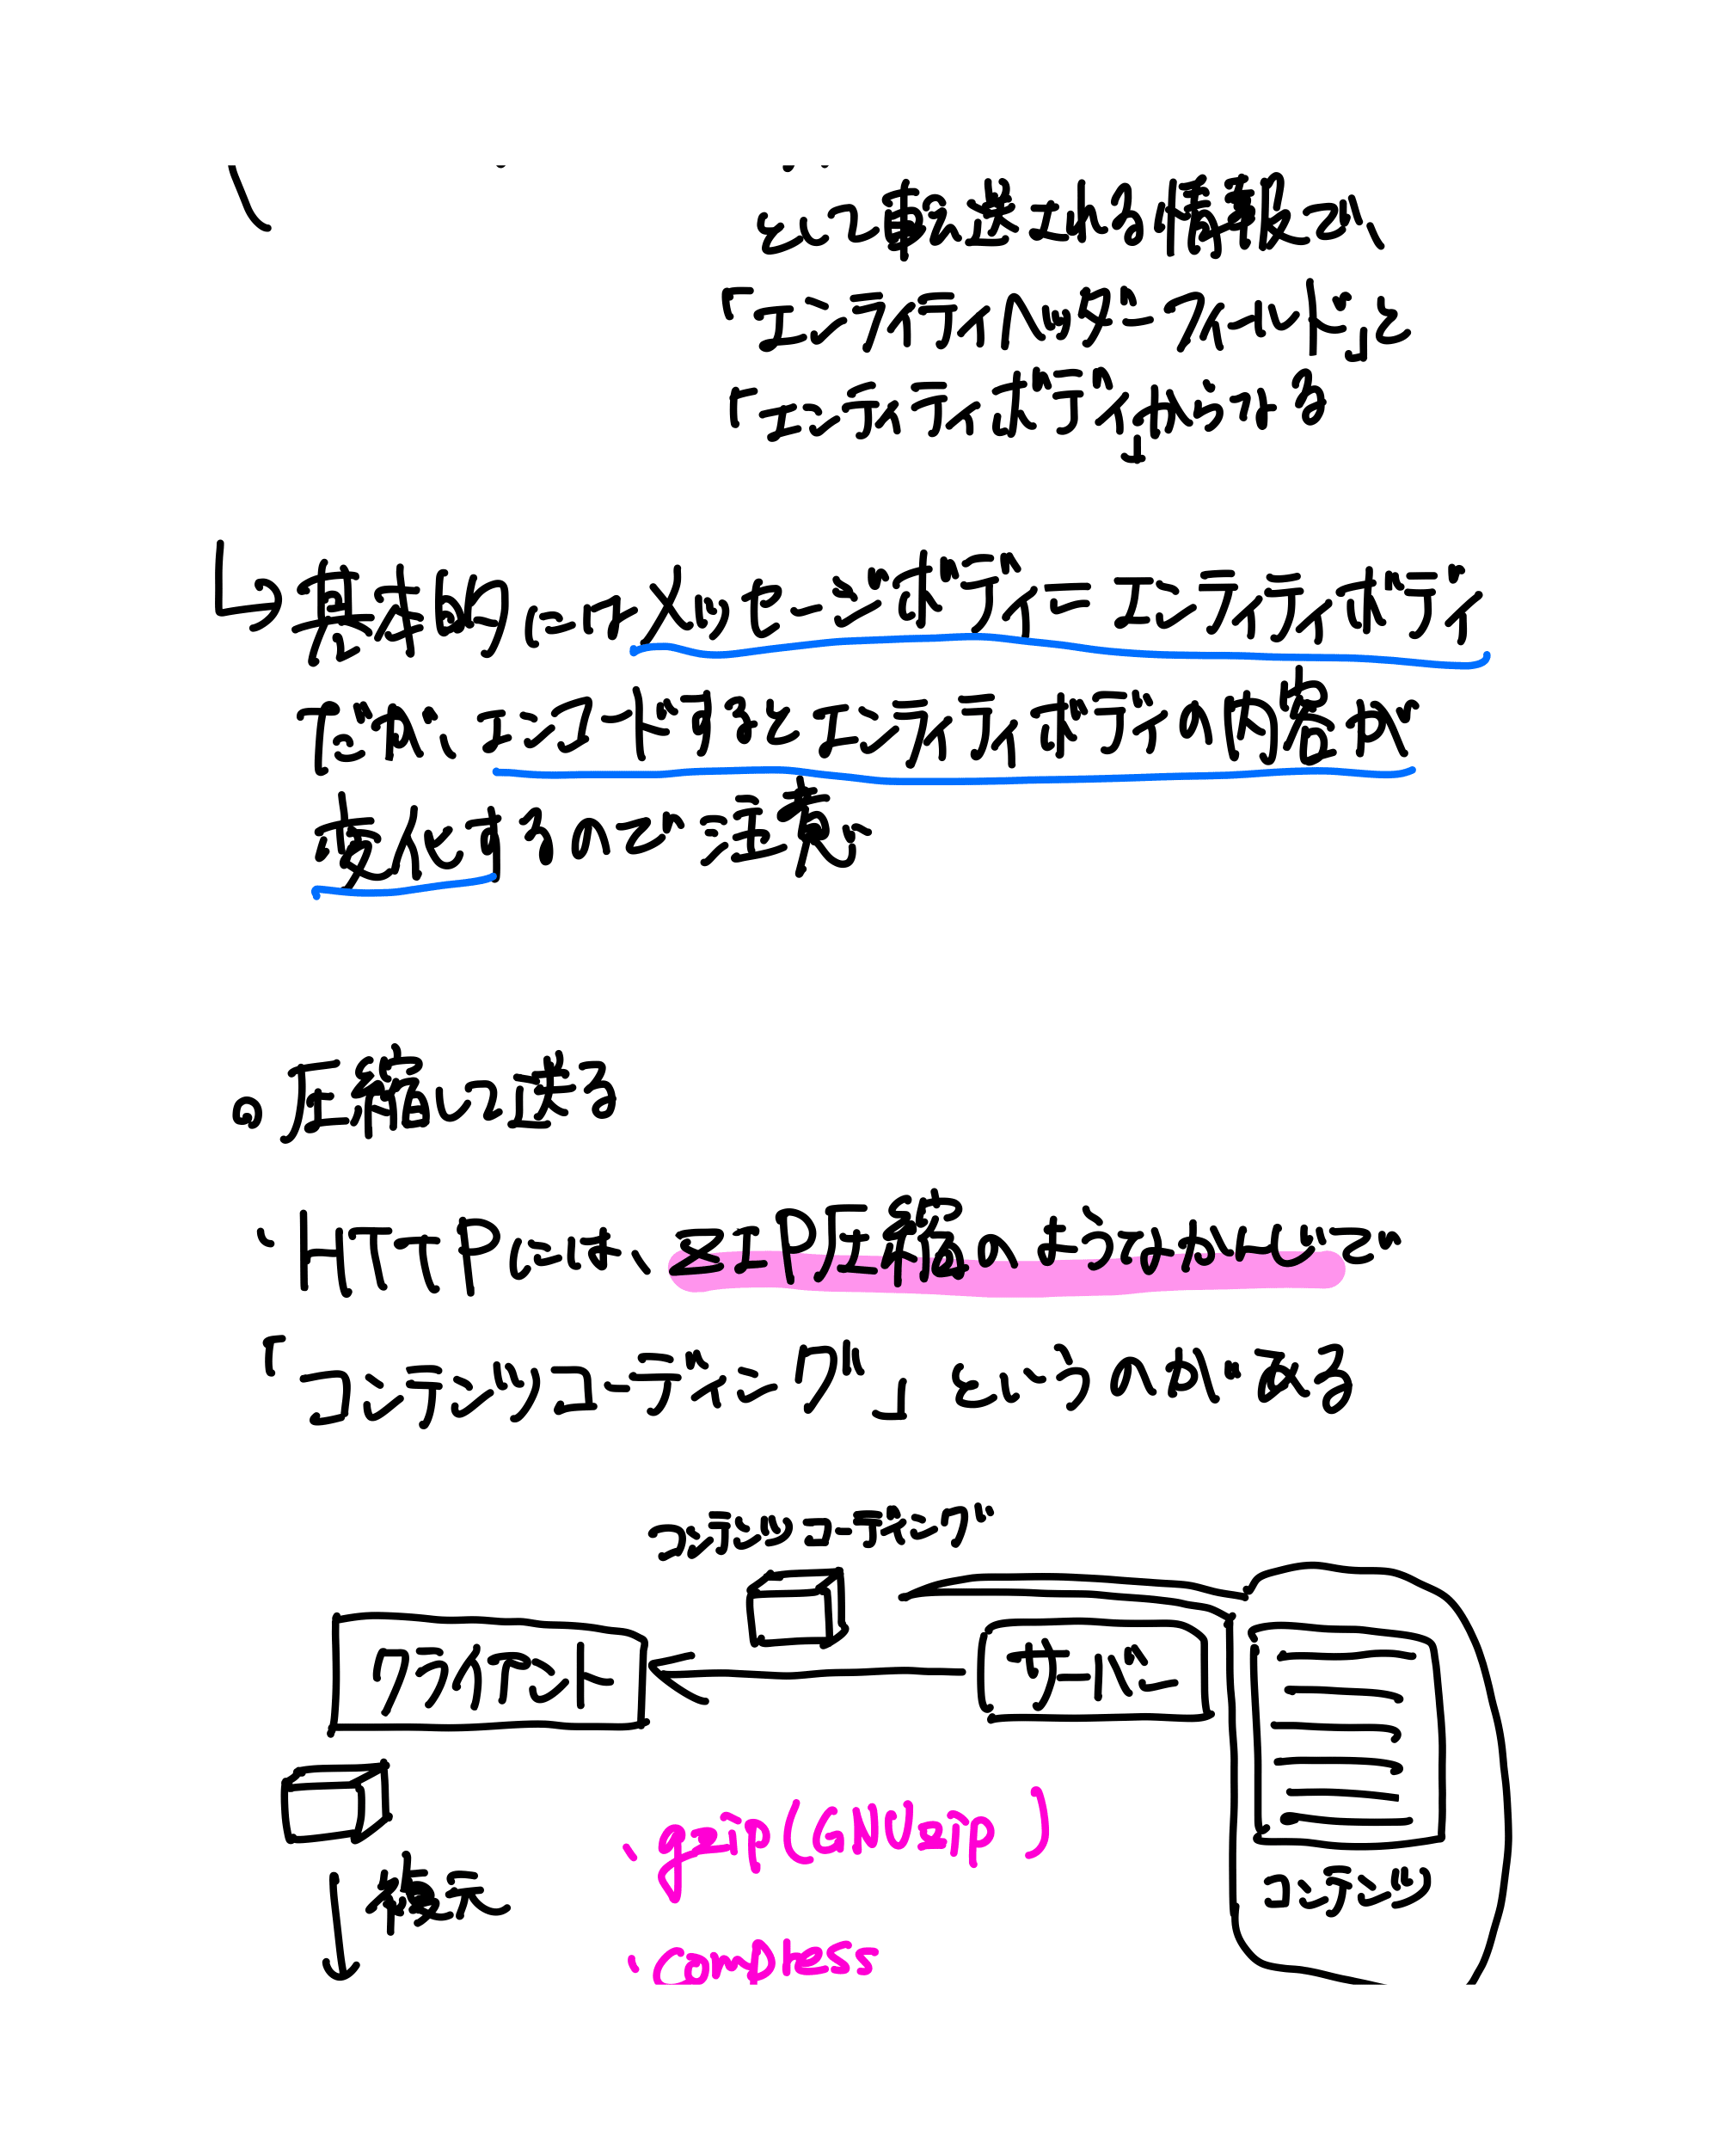 として転送される情報で、
「エンティティヘッダーフィールド」と
「エンティティボディ」からなる
基本的にはメッセージボディ=エンティティボディ
だが、エンコードするとエンティティボディの内容が
変化するので注意
圧縮して送る
・HTTPには、ZIP圧縮のようなかんじで
「コンテンツコーディング」というのがある
コンテンツコーディング
クライアント
サーバー
コンテンツ
復元
・gzip(GNU zip)
・compress